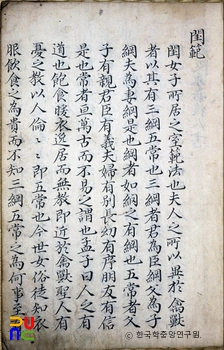 閨範
閨女子所居之室範法也夫人之所以異於禽獸
者以其有三綱五常也三綱者君為臣綱父為子
綱夫為妻綱是也綱者如網之有綱也五常者父
子有親君臣有義夫婦有別長幼有序朋友有信
是也常者亘萬古而不易之謂也孟子曰人之有
道也飽食暖衣逸居而無教即近於禽獸聖人有
憂之教以人倫〻〻即五常也今世女俗徒知衣
服飲食之為貴而不知三綱五常之為何事
ⓒ 한국학중앙연구원